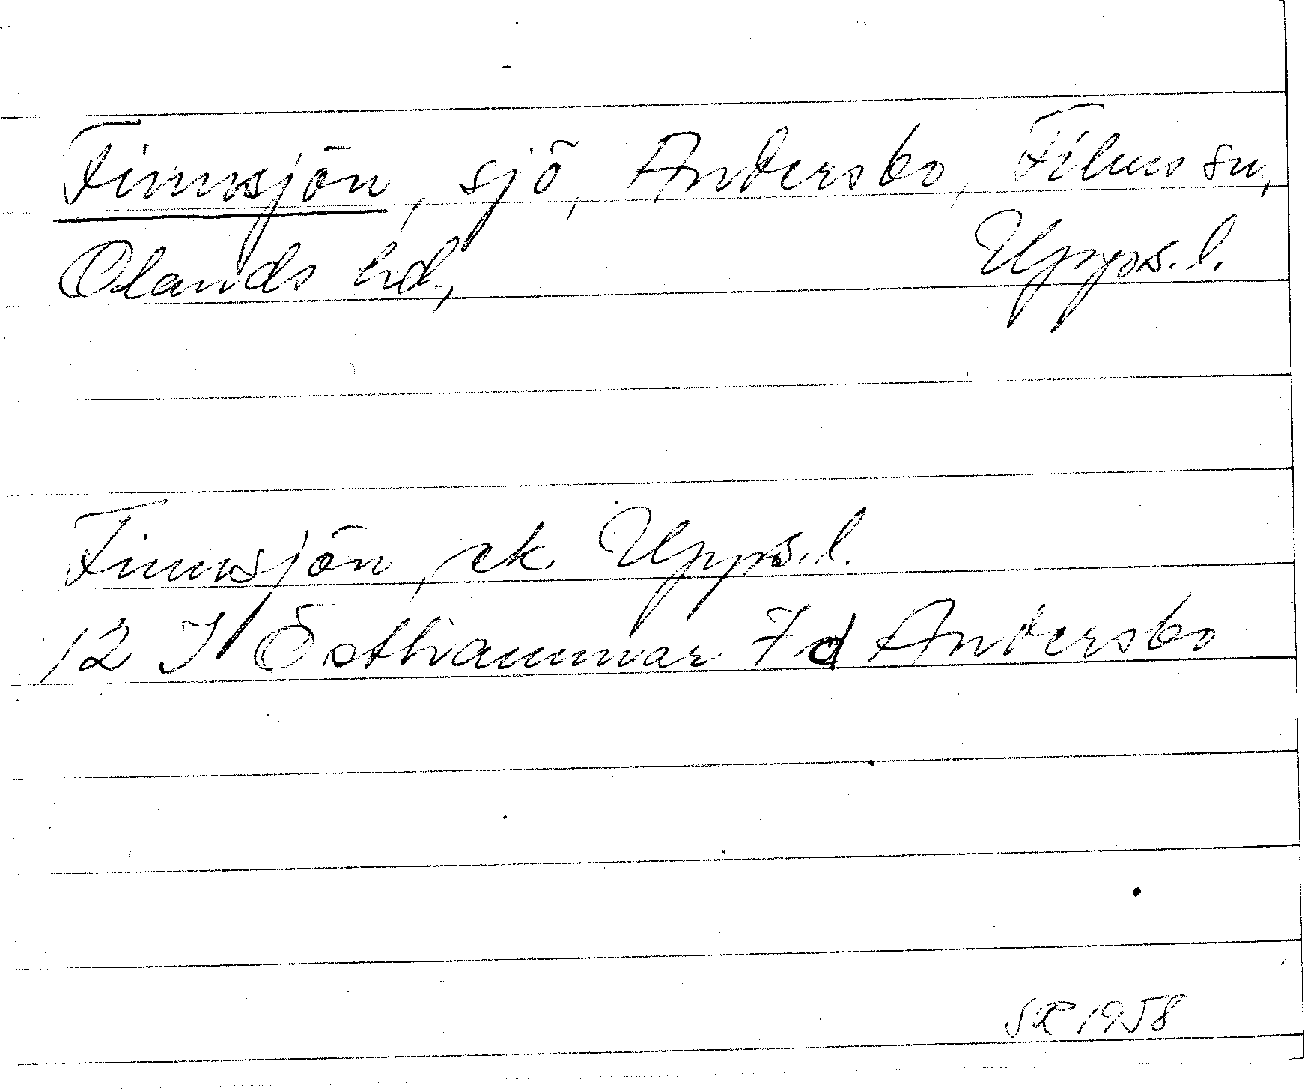 Finnsjön, sjö, Andersbo, Films sn,
Olands hd, Upps.l.
Finnsjön, ek Upps.l.
12 I Östhammar 7d Andersbo
1958